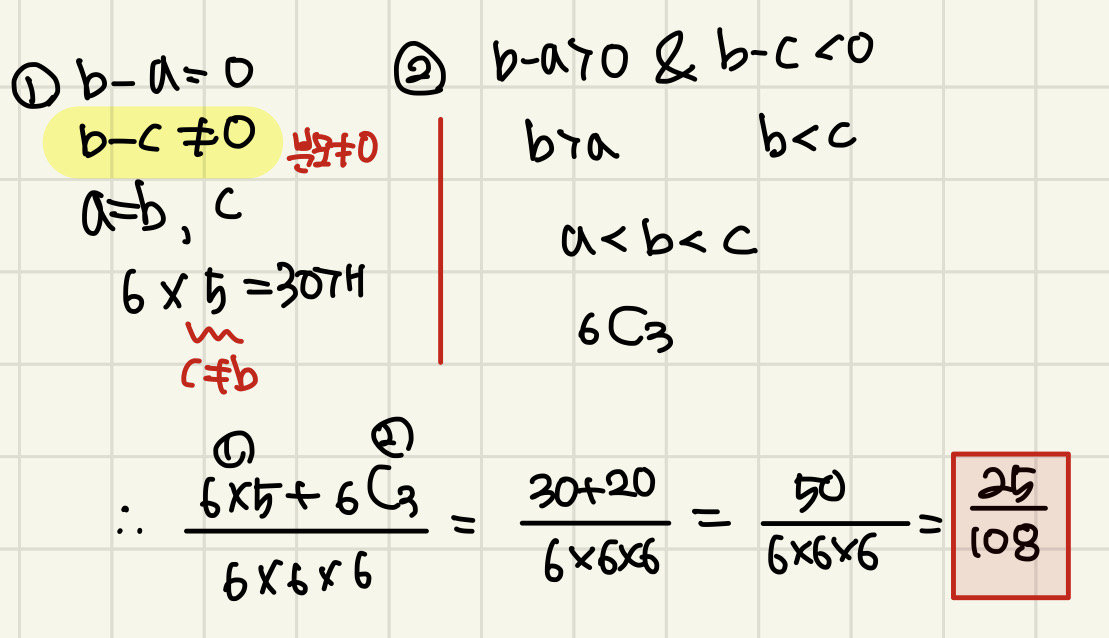 ① b-a=0
b-c≠0 분모≠0
a=b, c
6×5=30개
c≠b
② b-a>0 & b-c<0
b>a b<c
a<b<c
₆C₃
① ②
∴ (6×5+₆C₃)/(6×6×6) = (30+20)/(6×6×6) = 50/(6×6×6) = 25/108